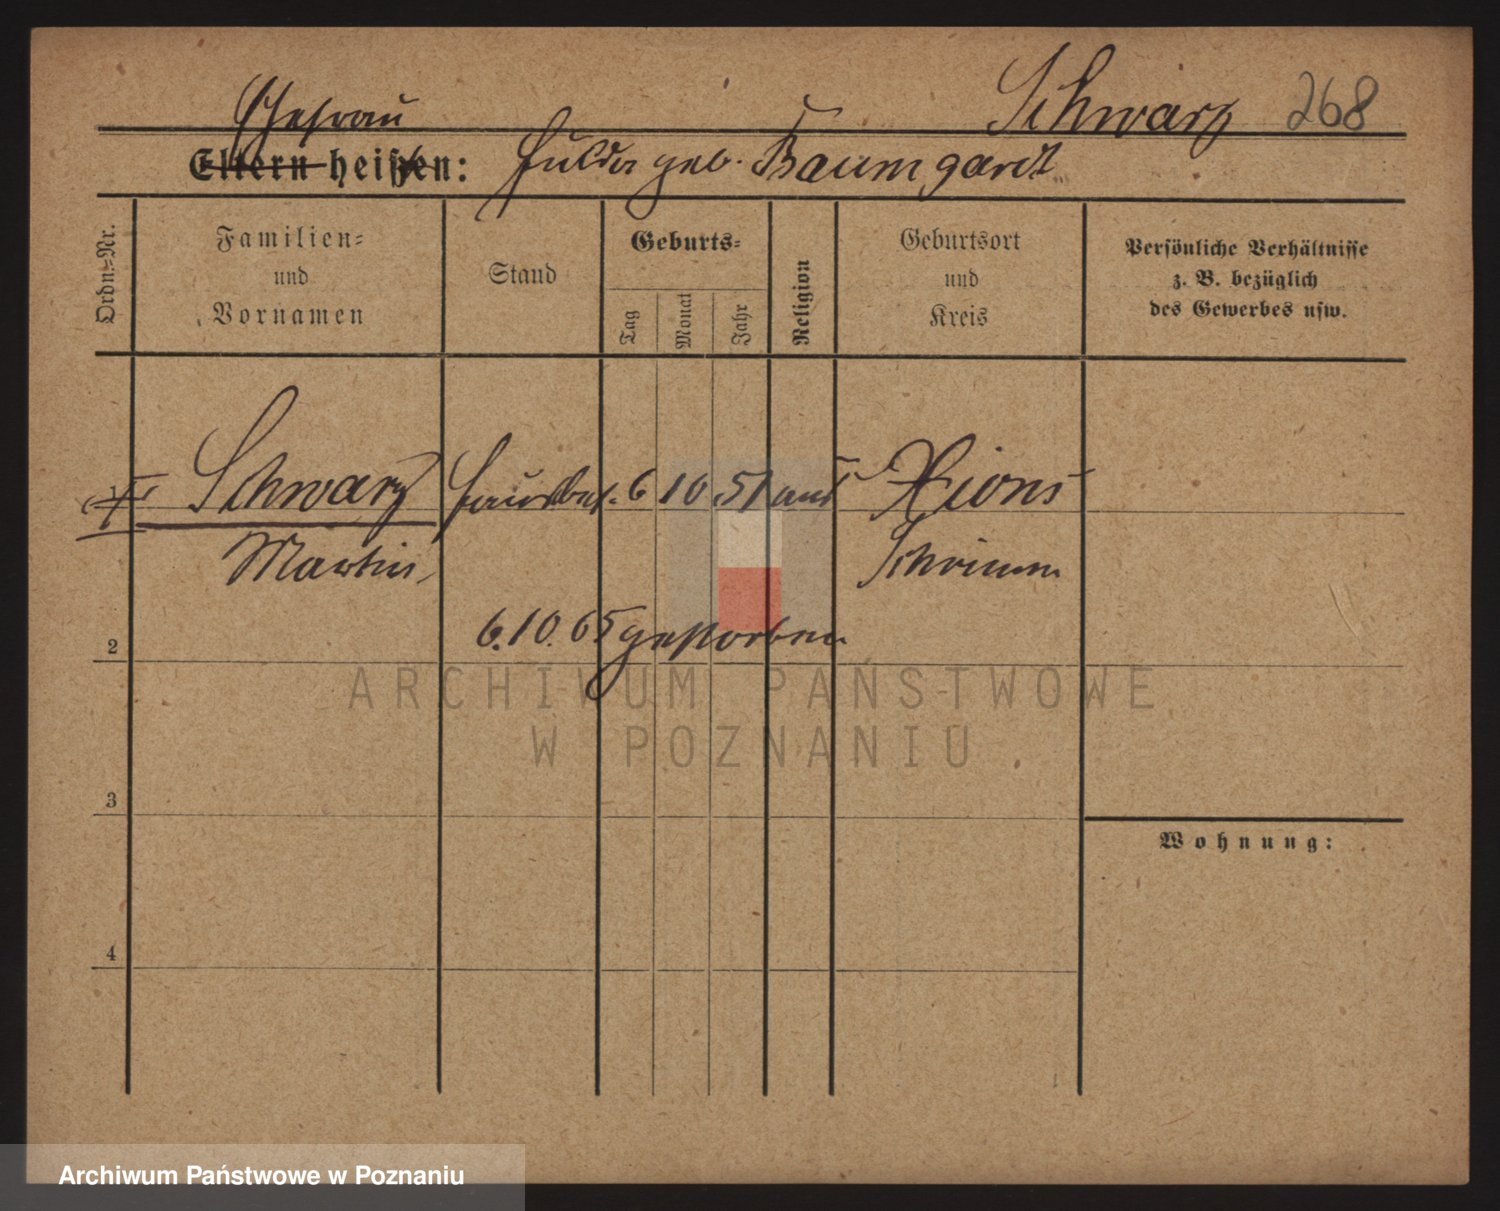 Schwarz 268
Ehefrau
Eltern heißen: Hulda geb. Baumgardt
Ordn.-Nr.
Familien-
und
Vornamen
Stand
Geburts-
Tag
Monat
Jahr
Religion
Geburtsort
und
Kreis
Persönliche Verhältnisse
z. B. bezüglich
des Gewerbes usw.
Schwarz Hausbes. 6 10 51 Xions
Martin Schrimm
6.10.65 gestorben
2
3
4
Wohnung:
ARCHIWUM PAŃSTWOWE
W POZNANIU .
Archiwum Państwowe w Poznaniu